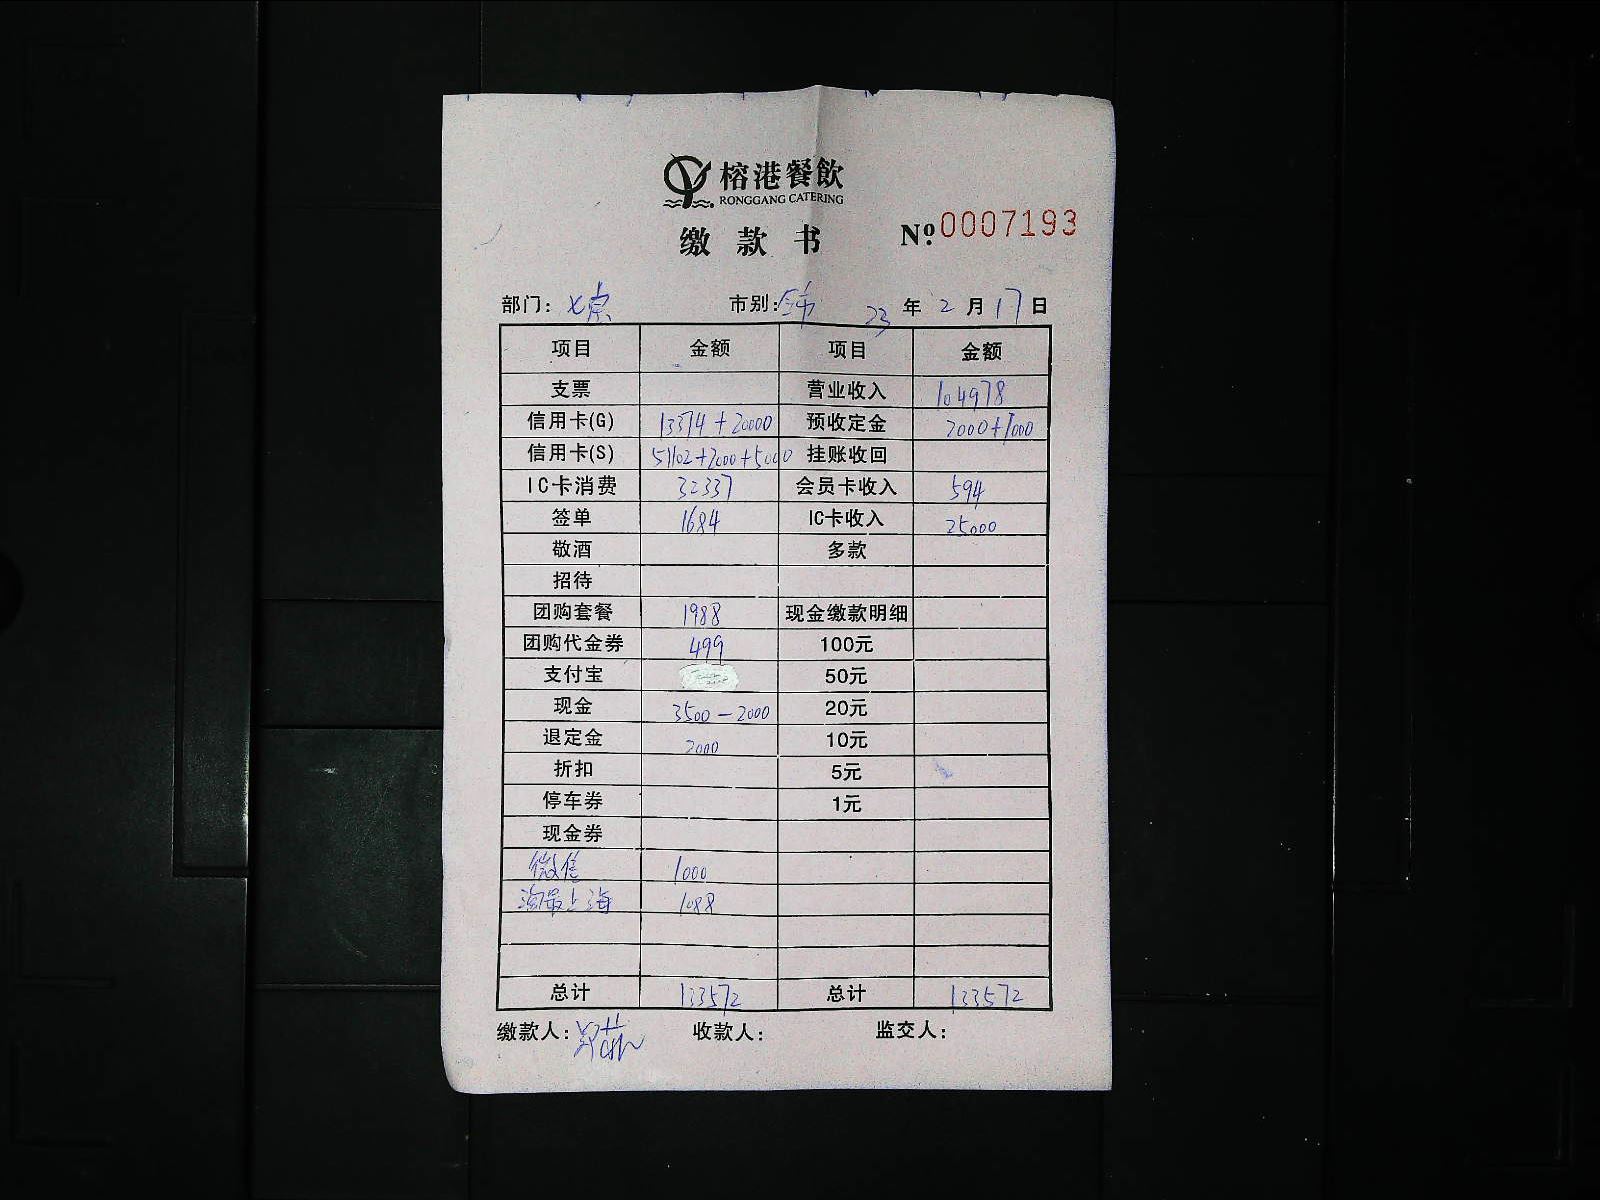 榕港餐飲
RONGGANG CATERING
缴款书 Nº 0007193
部门： 市别：全市 23 年 2 月 17 日
项目 金额 项目 金额
支票 营业收入 104978
信用卡(G) 13374+20000 预收定金 2000+1000
信用卡(S) 51102+2000+5000 挂账收回
IC卡消费 32337 会员卡收入 594
签单 1684 IC卡收入 25000
敬酒 多款
招待
团购套餐 1988 现金缴款明细
团购代金券 499 100元
支付宝 50元
现金 3500-2000 20元
退定金 2000 10元
折扣 5元
停车券 1元
现金券
微信 1000
淘最上海 1088
总计 133572 总计 133572
缴款人： 收款人： 监交人：